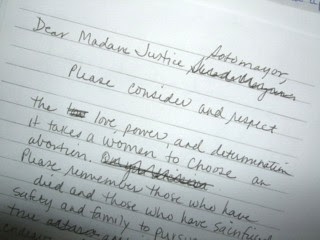 Dear Madame Justice Sotomayor,
Please consider and respect
the love, power, and determination
it takes a women to choose an
abortion.
Please remember those who have
died and those who have sacrificed
safety and family to pursue
true